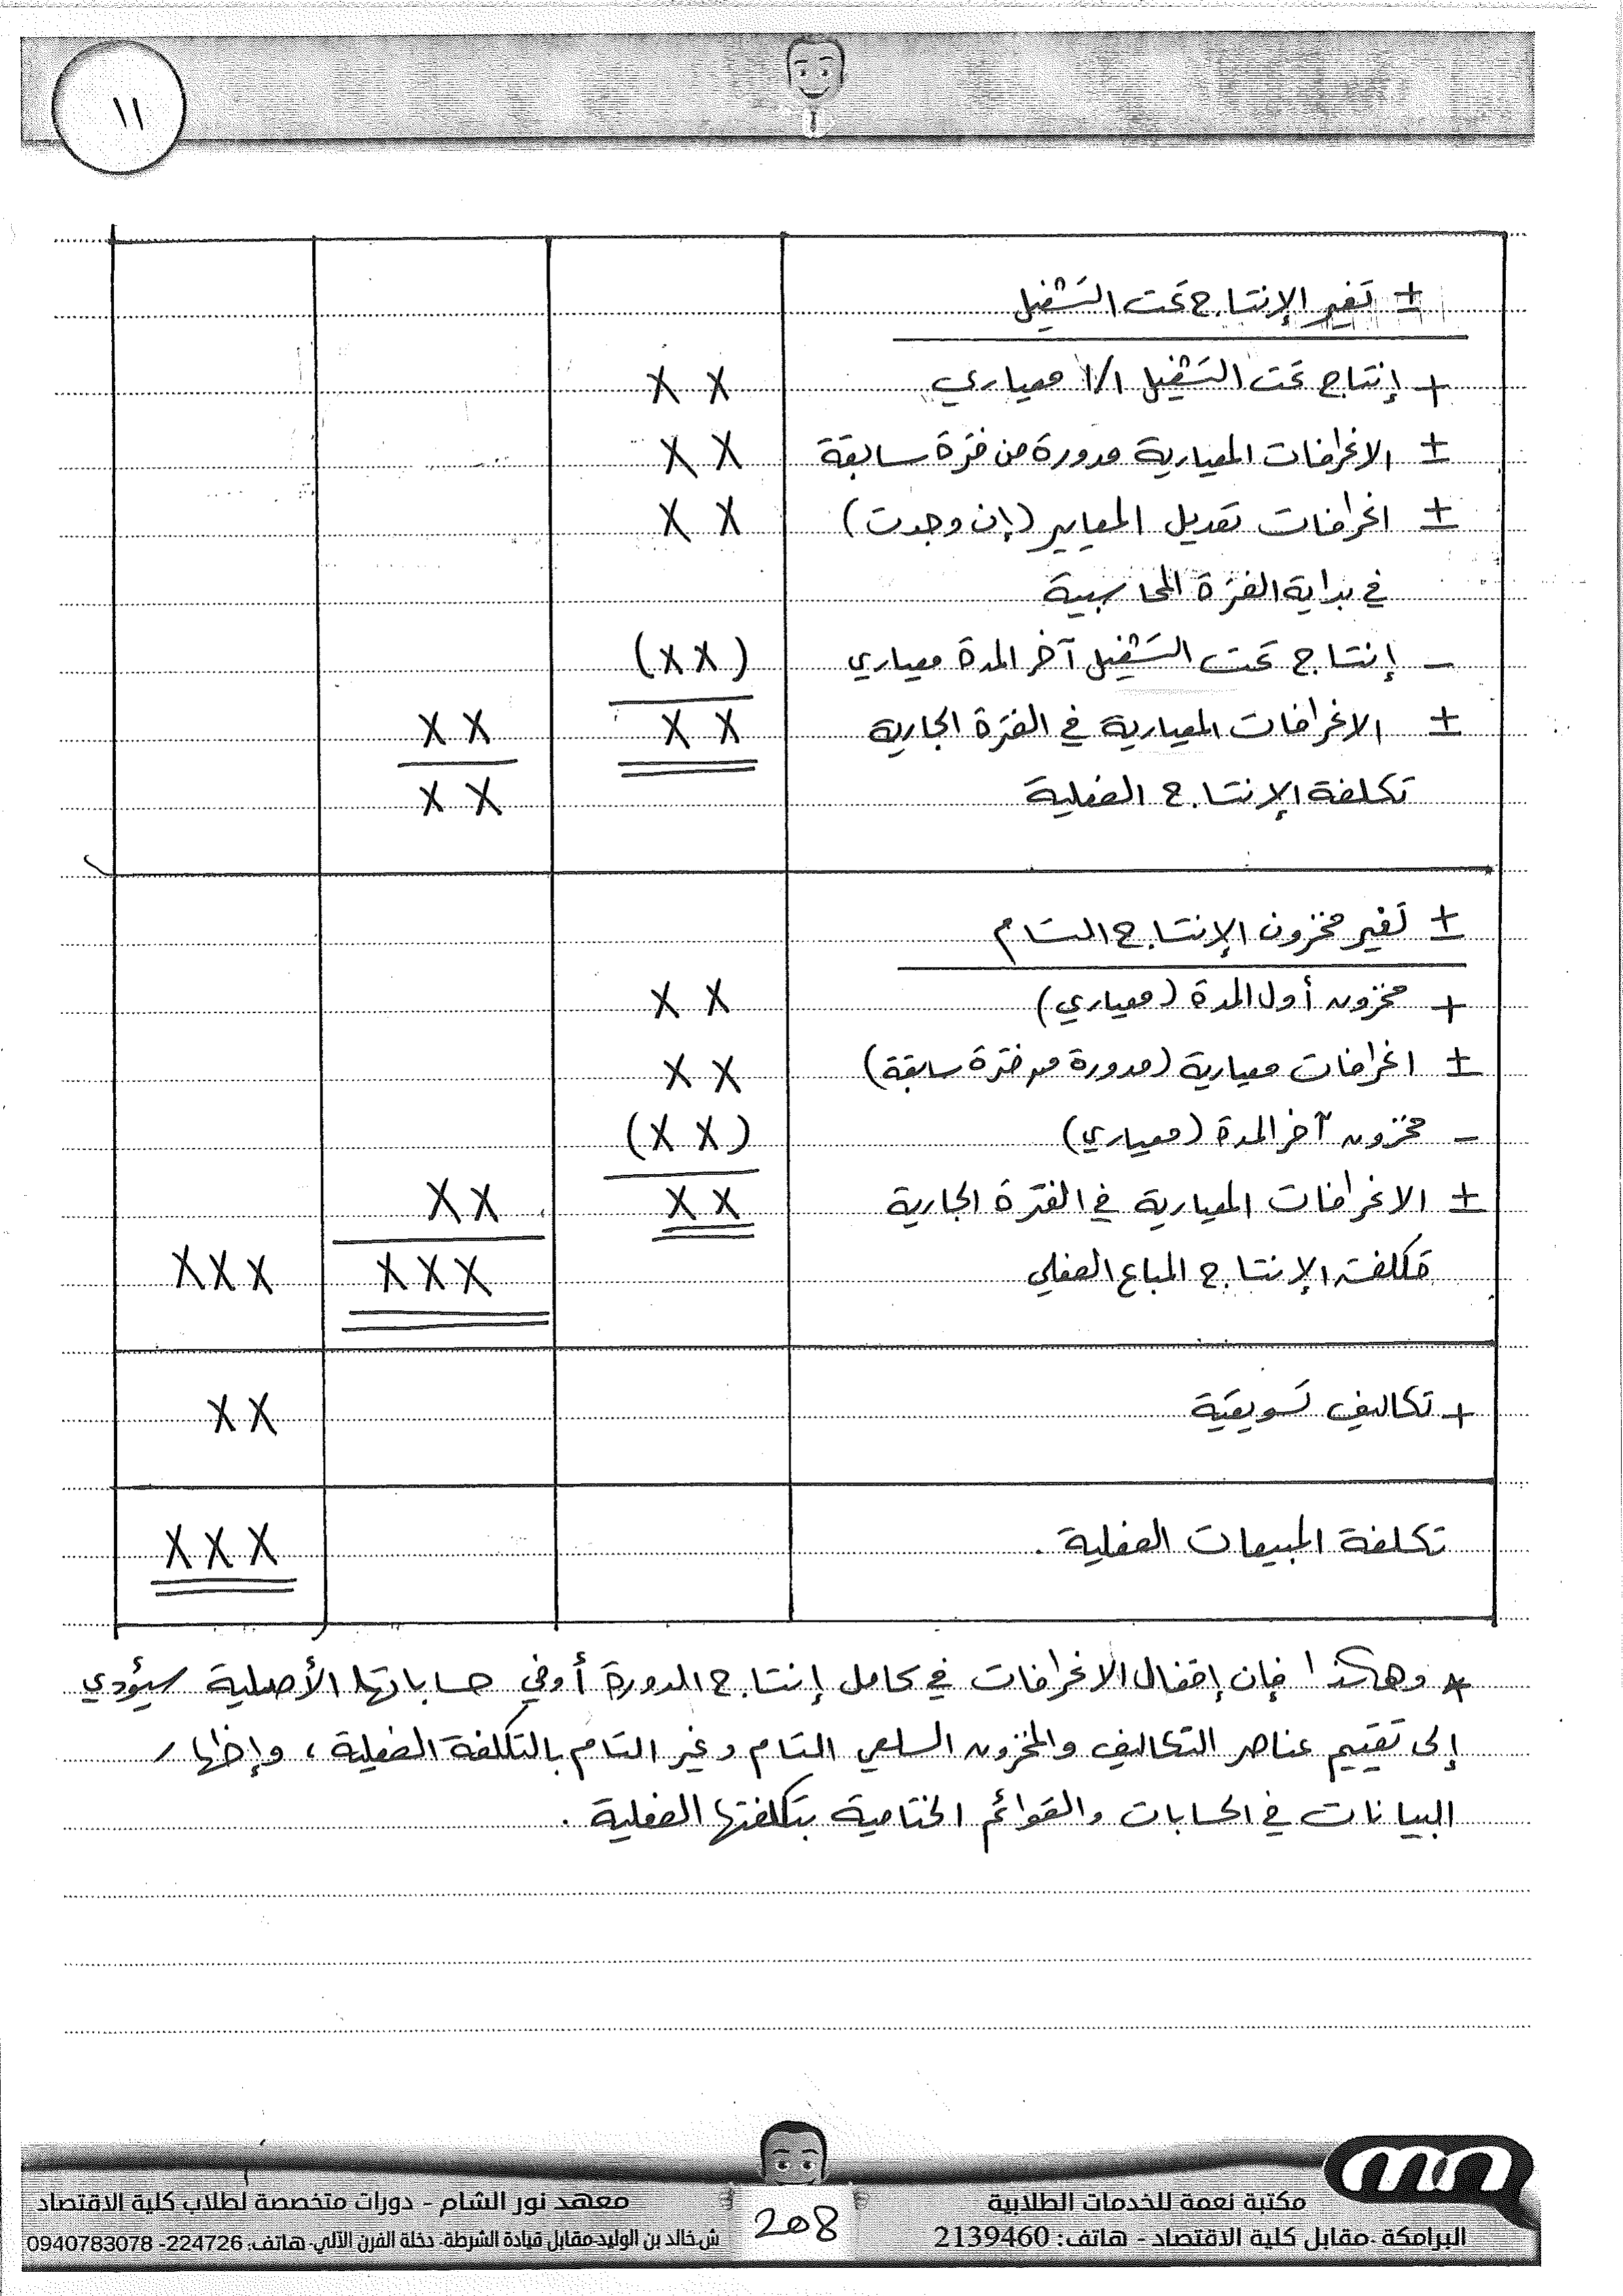 ١١
± تغير الإنتاج تحت التشغيل
+ إنتاج تحت التشغيل ١/١ معياري X X
± الانحرافات المعيارية مدورة من فترة سابقة X X
± انحرافات تعديل المعايير (إن وجدت) X X
في بداية الفترة المحاسبية
- إنتاج تحت التشغيل آخر المدة معياري (X X)
± الانحرافات المعيارية في الفترة الجارية X X X X
تكلفة الإنتاج الفعلية X X
± تغير مخزون الإنتاج التام
+ مخزون أول المدة (معياري) X X
± انحرافات معيارية (مدورة من فترة سابقة) X X
- مخزون آخر المدة (معياري) (X X)
± الانحرافات المعيارية في الفترة الجارية X X X X
تكلفة الإنتاج المباع الفعلي X X X X X X
+ تكاليف تسويقية X X
تكلفة المبيعات الفعلية . X X X
* وهكذا فإن إقفال الانحرافات في كامل إنتاج الدورة أو في حساباتها الأصلية سيؤدي
إلى تقييم عناصر التكاليف والمخزون السلعي التام وغير التام بالتكلفة الفعلية ، وإظهار
البيانات في الحسابات والقوائم الختامية بتكلفتها الفعلية .
مكتبة نعمة للخدمات الطلابية
البرامكة -مقابل كلية الاقتصاد - هاتف: 2139460
208
معهد نور الشام - دورات متخصصة لطلاب كلية الاقتصاد
ش.خالد بن الوليد-مقابل قيادة الشرطة- دخلة الفرن الآلي- هاتف: 224726- 0940783078